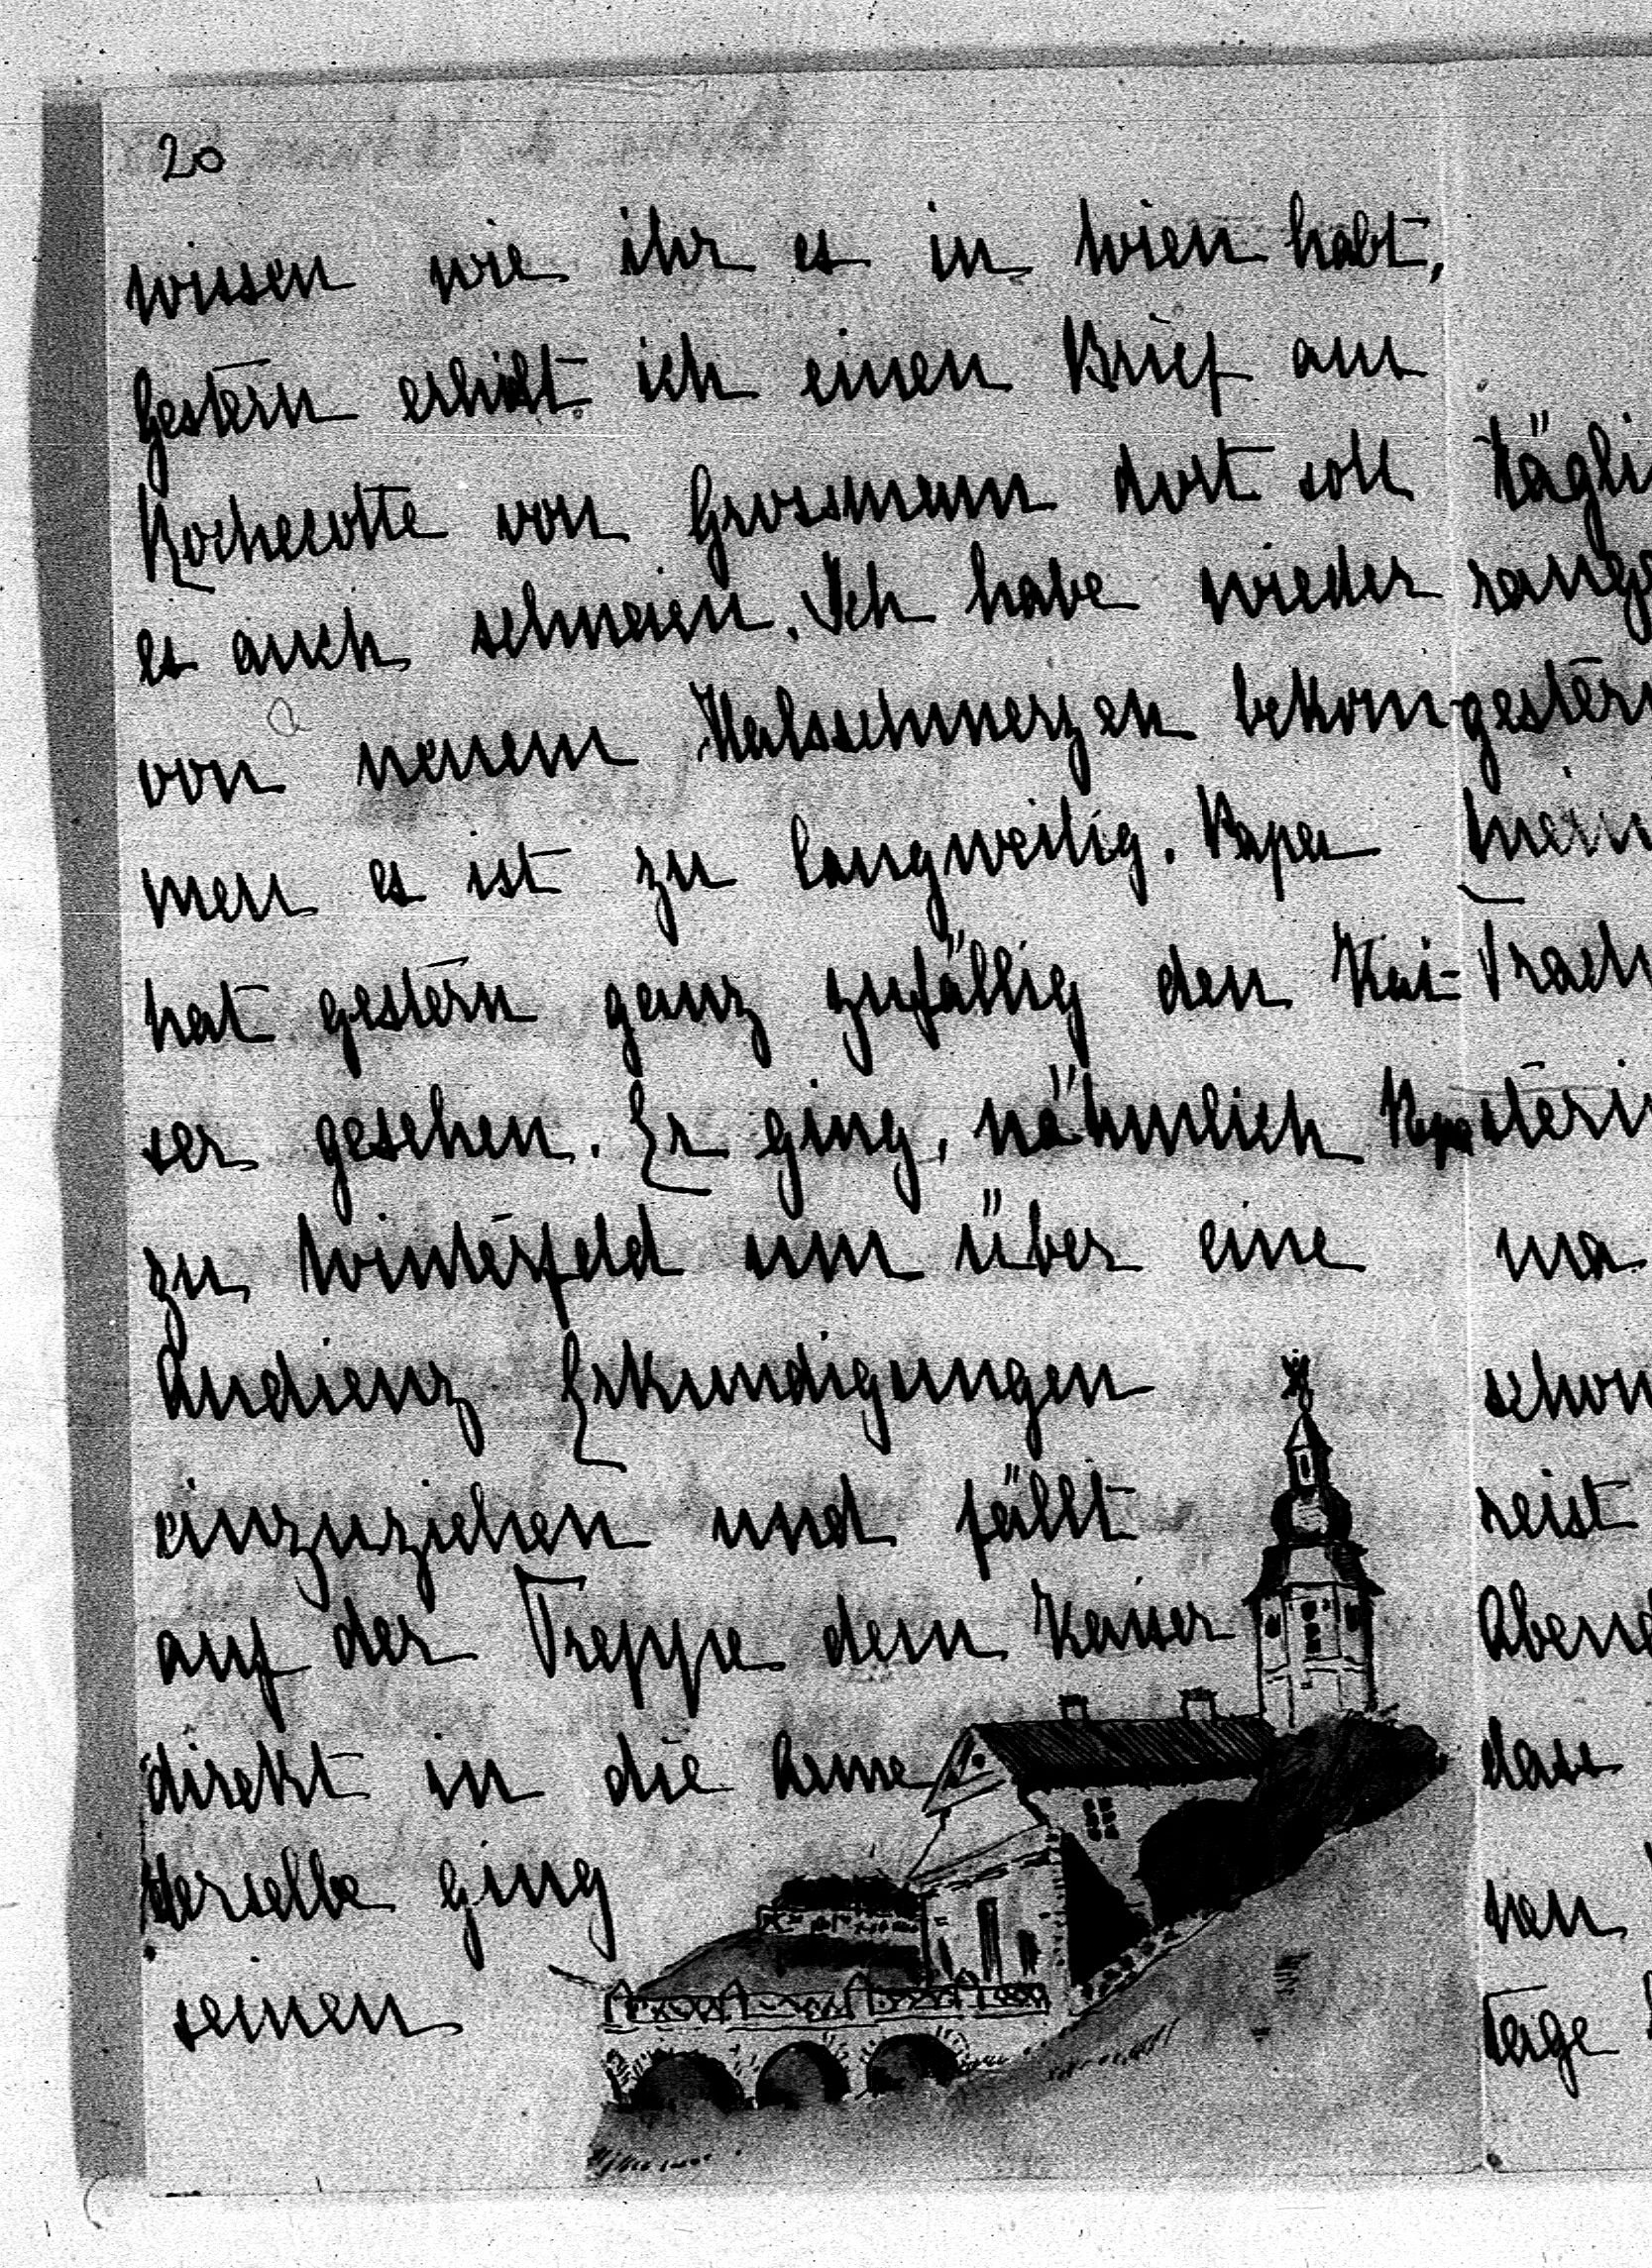 20
wissen wie ihr es in Wien habt,
Gestern erhilt ich einen Brief aus
Rochecotte von Grossmam dort soll
es auch schneien. Ich habe wieder
von neuem Halsschmerzen bekom-
men es ist zu langweilig. Papa
hat gestern ganz zufällig den Kai-
ser gesehen. Er ging, nähmlich Papa
zu Winterfeld um über eine
Audienz Erkundigungen
einzuziehen und fällt
auf der Treppe dem Kaiser
direkt in die Arme
derselbe ging
seinen
tägli
gestern
Trach
ma
schon
reist
Abend
dass
nen
Tage